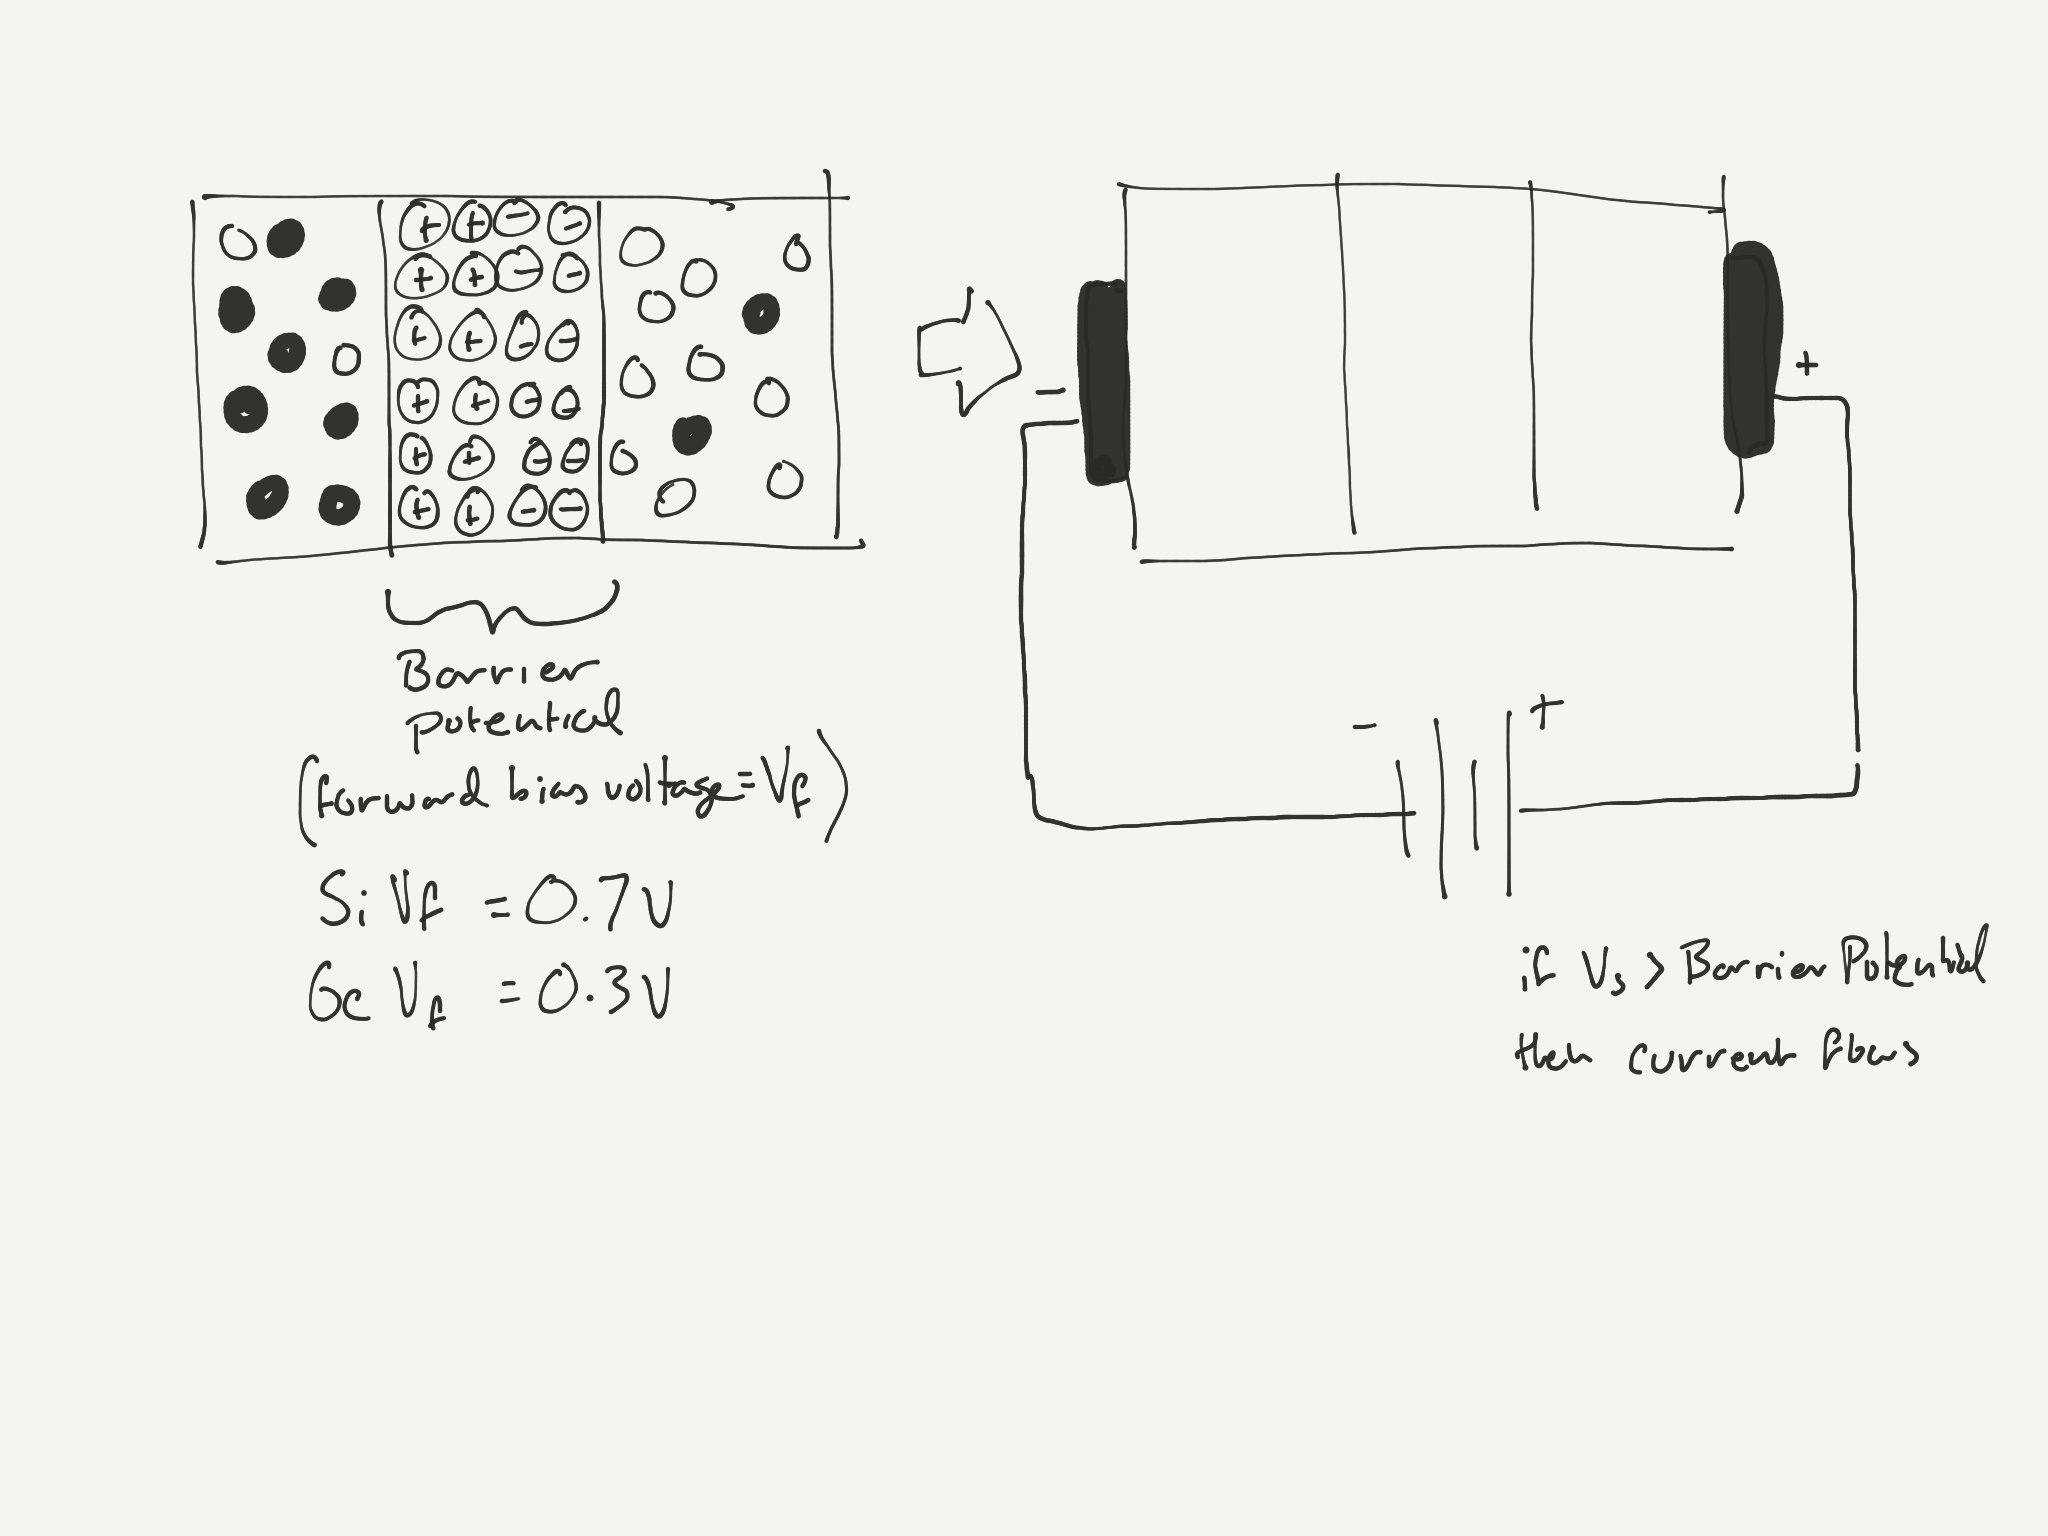 + + - -
+ + - -
+ + - -
+ + - -
+ + - -
+ + - -
Barrier
potential
(forward bias voltage = Vf)
Si Vf = 0.7V
Ge Vf = 0.3V
-
+
-
+
if Vs > Barrier Potential
then current flows